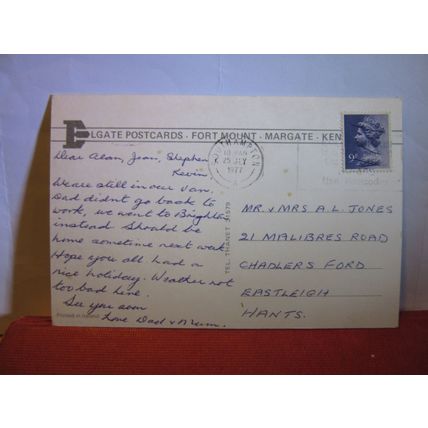 ELGATE POSTCARDS · FORT MOUNT · MARGATE · KEN
Dear Alan, Jean, Stephen
Kevin,
We are still in our van.
Dad didnt go back to
work, we went to Brighton
instead. Should be
home sometime next week
Hope you all had a
nice holiday. Weather not
too bad here.
See you soon
Love Dad & Mum.
TEL. THANET
SOUTHAMPTON
1977
9
the Postcode
MR. & MRS A. L. JONES
21 MALIBRES ROAD
CHADLERS FORD
EASTLEIGH
HANTS.